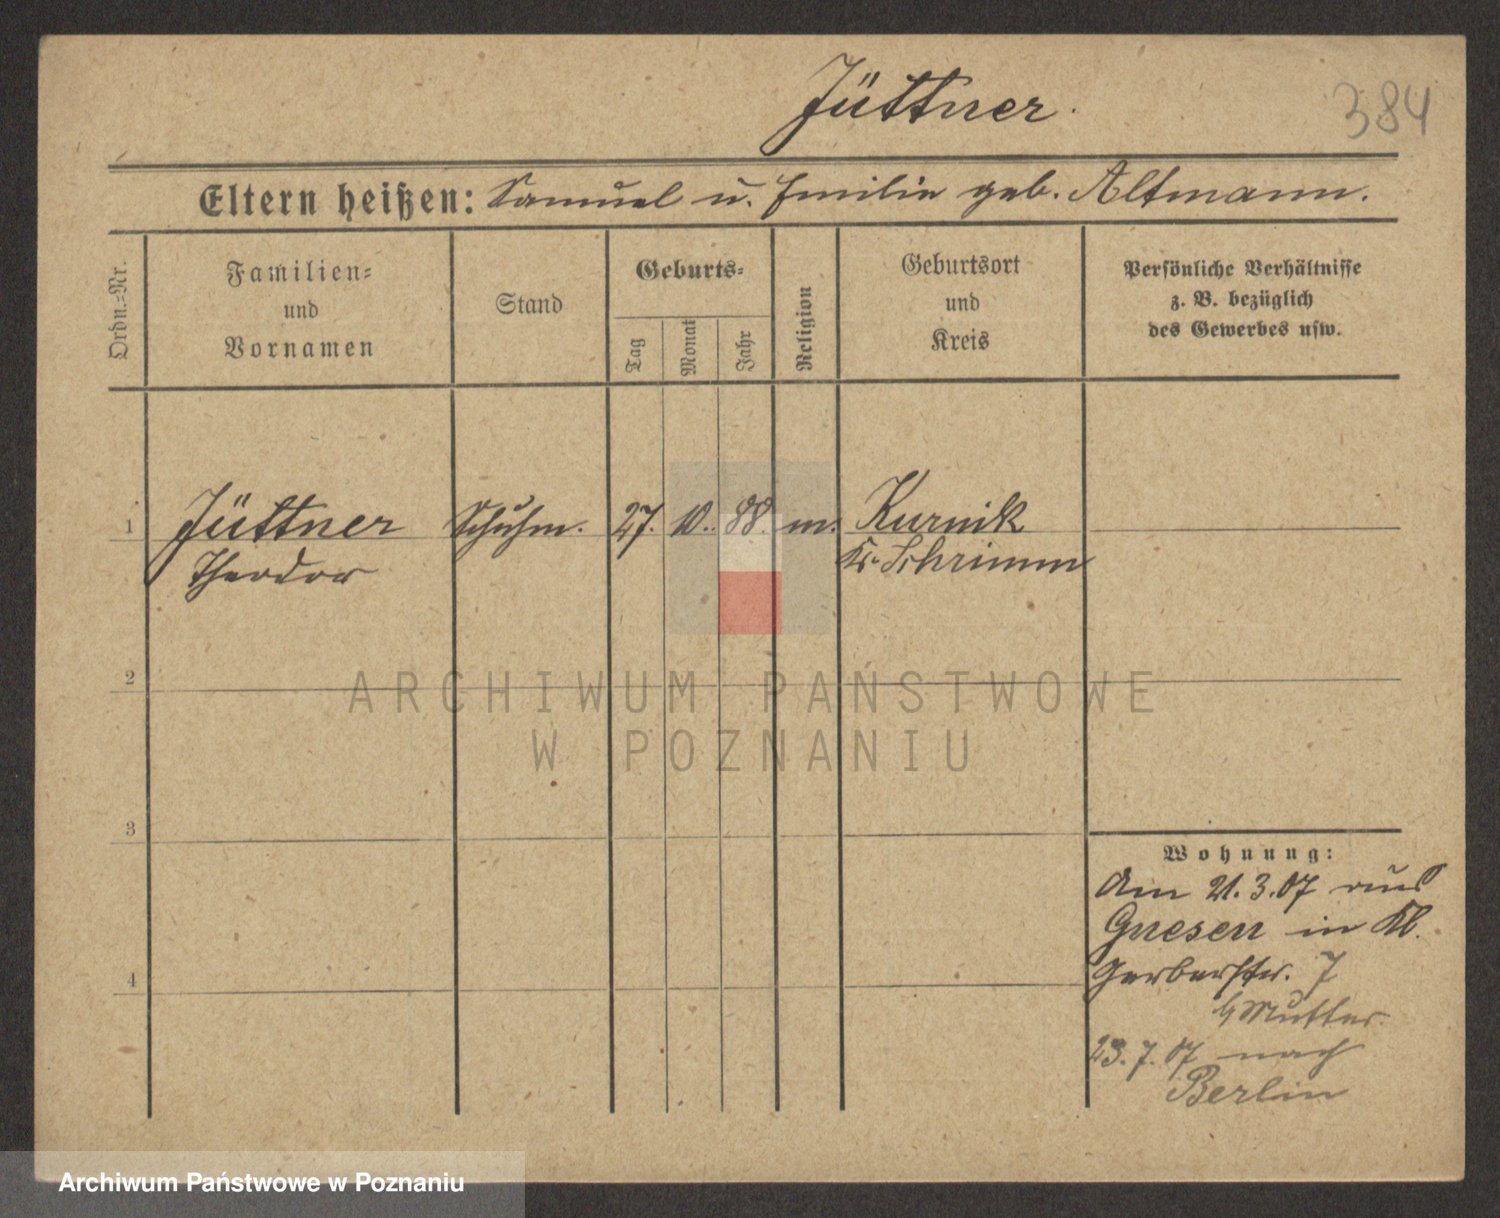 Jüttner.
384
Eltern heißen: Samuel u. Emilie geb. Altmann.
Ordn.=Nr.
Familien=
und
Vornamen
Stand
Geburts=
Tag
Monat
Jahr
Religion
Geburtsort
und
Kreis
Persönliche Verhältnisse
z. B. bezüglich
des Gewerbes usw.
1 Jüttner Schuhm. 27. 10. 88. m. Kurnik
Theodor Kr. Schrimm
2
3
4
Wohnung:
Am 21.3.07 aus
Gnesen in Kl.
Gerberstr. 7
b/Mutter.
23.7.07 nach
Berlin
ARCHIWUM PAŃSTWOWE
W POZNANIU
Archiwum Państwowe w Poznaniu